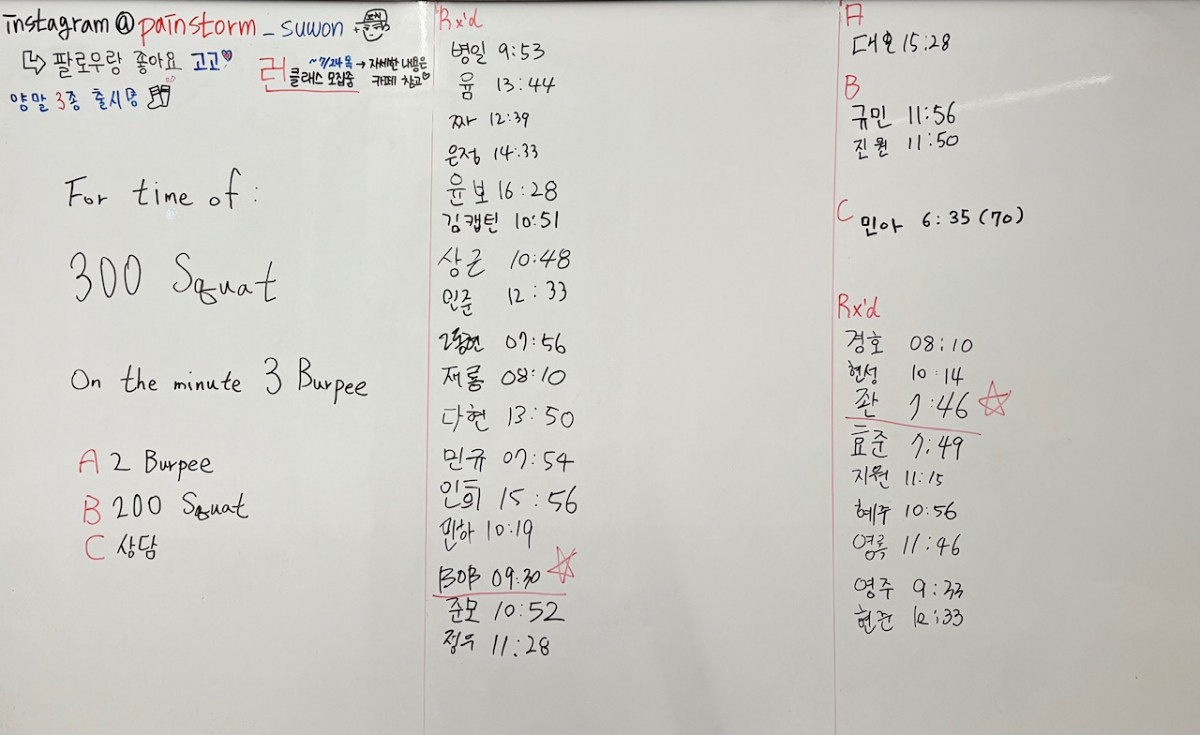 instagram @ painstorm_suwon +
팔로우랑 좋아요 고고
양말 3종 출시
러 클래스 모집중
~7/24 목 → 자세한 내용은
카페 참고
For time of:
300 Squat
On the minute 3 Burpee
A 2 Burpee
B 200 Squat
C 상담
Rx'd
병일 9:53
윰 13:44
짜 12:39
은정 14:33
윤보 16:28
김캡틴 10:51
상근 10:48
인준 12:33
2동현 07:56
재롱 08:10
다현 13:50
민규 07:54
인희 15:56
민하 10:19
BOB 09:30
준모 10:52
정우 11:28
A
15:28
B
규민 11:56
진원 11:50
C
민아 6:35 (70)
Rx'd
경호 08:10
현성 10:14
좐 7:46
효준 7:49
지원 11:15
혜주 10:56
영록 11:46
영주 9:33
현관 12:33